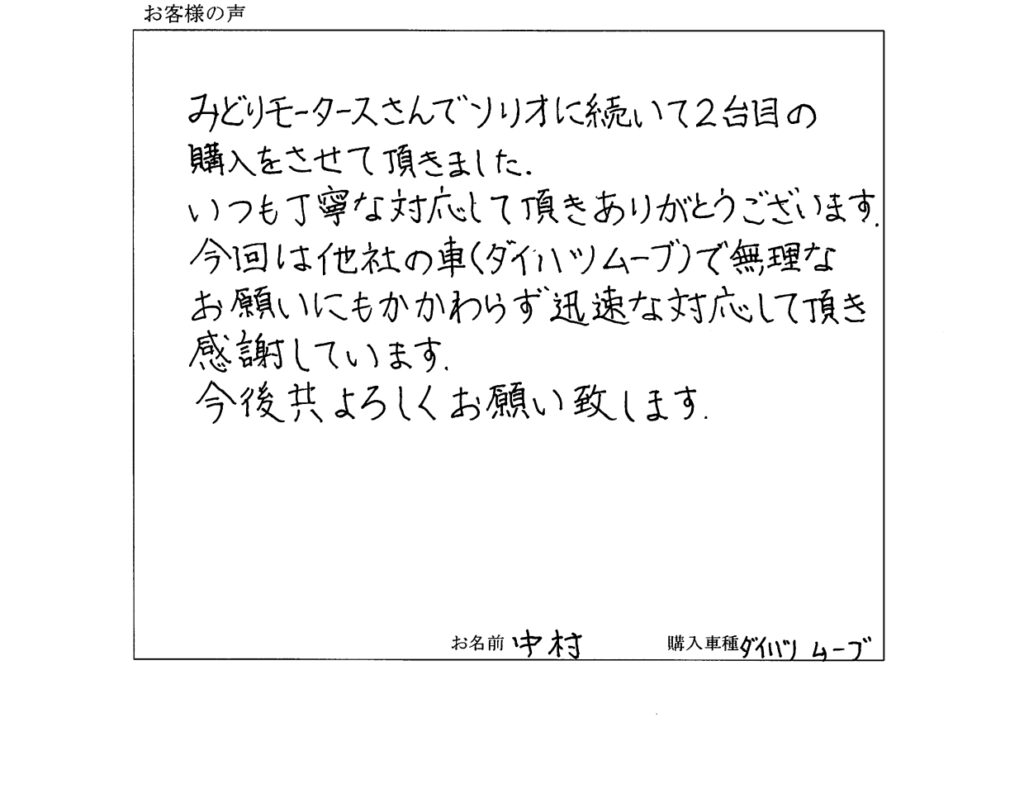 お客様の声
みどりモータースさんでソリオに続いて2台目の
購入をさせて頂きました.
いつも丁寧な対応して頂きありがとうございます.
今回は他社の車(ダイハツムーブ)で無理な
お願いにもかかわらず迅速な対応して頂き
感謝しています.
今後共よろしくお願い致します.
お名前 中村 購入車種 ダイハツ ムーブ